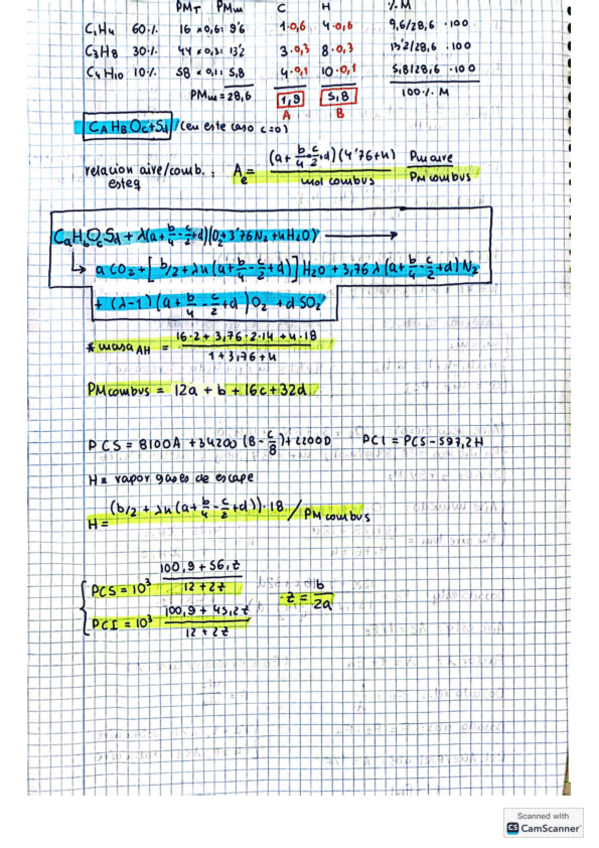 PMT PMm C H %M
C₁H₄ 60% 16 x 0,6 = 9'6 1·0,6 4·0,6 9,6/28,6 · 100
C₃H₈ 30% 44 x 0,3 = 13'2 3·0,3 8·0,3 13'2/28,6 · 100
C₄H₁₀ 10% 58 x 0,1 = 5,8 4·0,1 10·0,1 5,8/28,6 · 100
PMm = 28,6 1,9 5,8 100% M
A B
CA HB OC + Sd / (en este caso c=0)
relacion aire/comb. esteq : Ae = (a + b/4 - c/2 + d)(4'76 + u) / mol combus · PM aire / PM combus
CaHbOcSd + λ(a + b/4 - c/2 + d)(O₂ + 3'76N₂ + uH₂O) →
↳ aCO₂ + [b/2 + λu(a + b/4 - c/2 + d)]H₂O + 3,76λ(a + b/4 - c/2 + d)N₂
+ (λ-1)(a + b/4 - c/2 + d)O₂ + dSO₂
* masa AH = 16·2 + 3,76·2·14 + u·18 / 1 + 3,76 + u
PMcombus = 12a + b + 16c + 32d
PCS = 8100A + 34200(B - C/8) + 2200D PCI = PCS - 597,2H
H = vapor gases de escape
H = (b/2 + λu(a + b/4 - c/2 + d))·18 / PM combus
PCS = 10³ 100,9 + 56,z / 12 + 2z · z = b/2a
PCI = 10³ 100,9 + 45,2z / 12 + 2z
Scanned with
CS CamScanner